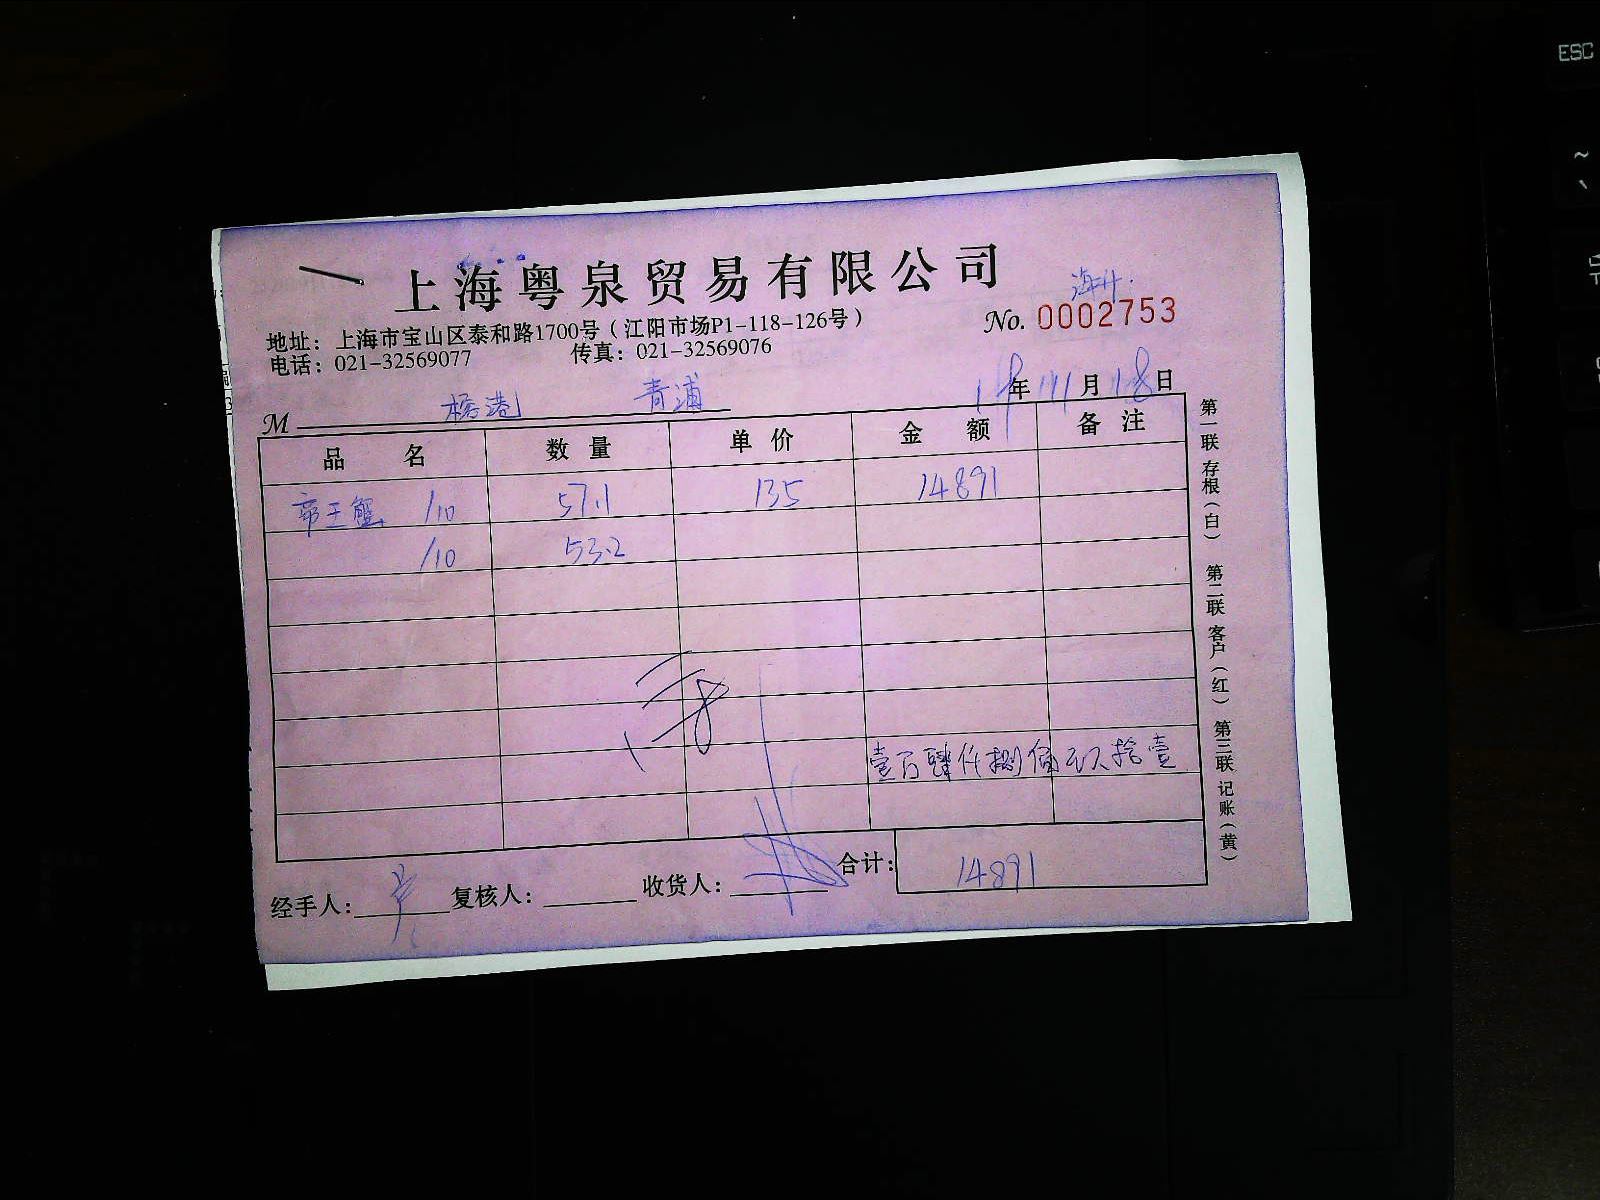 上海粤泉贸易有限公司
海升.
地址：上海市宝山区泰和路1700号（江阳市场P1-118-126号）
No. 0002753
电话：021-32569077 传真：021-32569076
M 杨港 青浦 19年 11月 18日
品 名 数 量 单 价 金 额 备 注
帝王蟹 /10 57.1 135 14891
/10 53.2
壹万肆仟捌佰玖拾壹
合计：14891
经手人： 复核人： 收货人：
第一联 存根（白） 第二联 客户（红） 第三联 记账（黄）
ESC
~